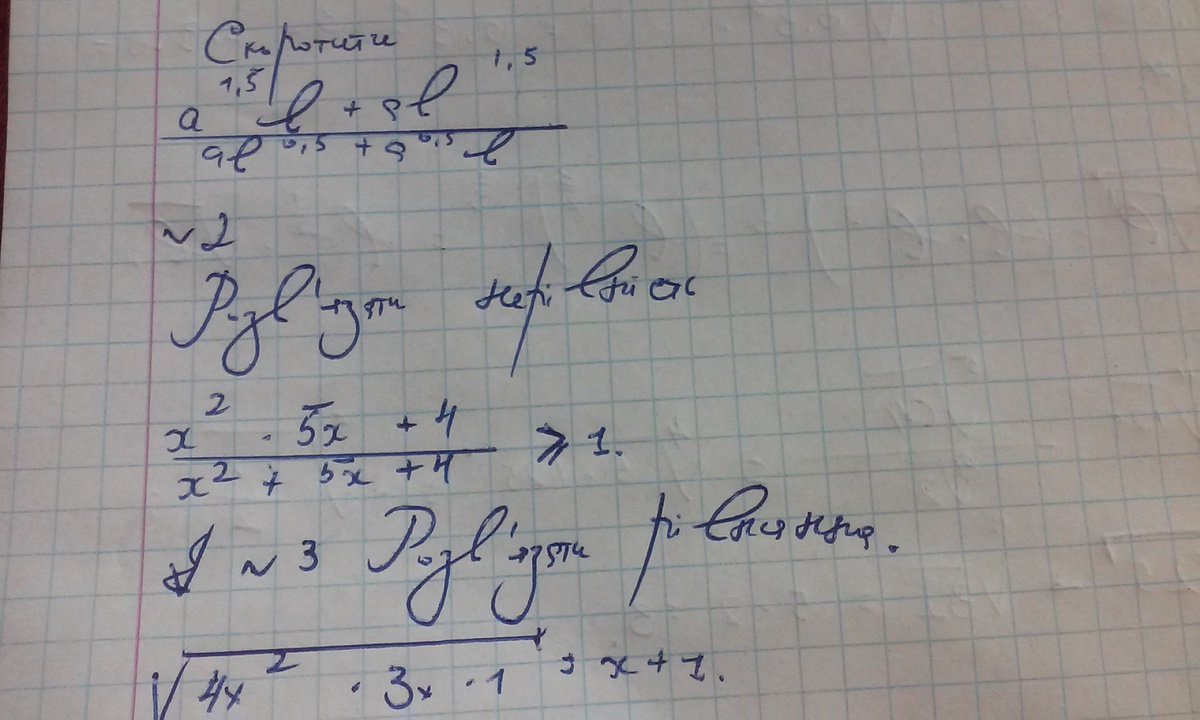 Скоротити
a^1,5 b + ab^1,5
ab^0,5 + a^0,5 b
~ 2
Розв'язати нерівність
x² - 5x + 4
x² + 5x + 4 ⩾ 1.
~ 3 Розв'язати рівняння.
√4x² - 3x - 1 = x + 1.